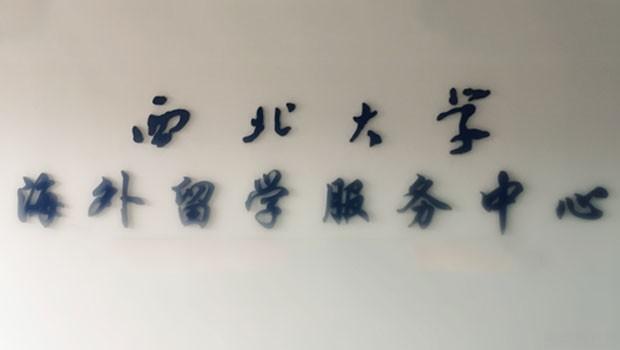 西北大学
海外留学服务中心